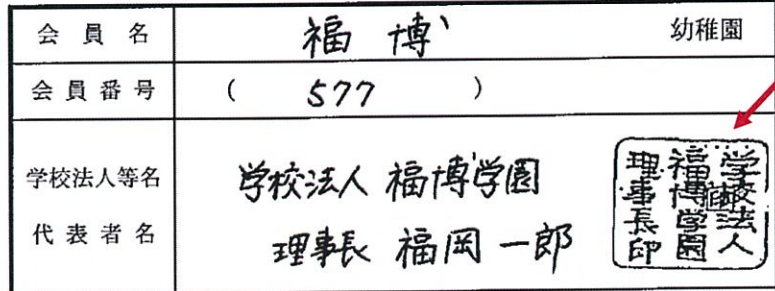 会員名 福博 幼稚園
会員番号 ( 577 )
学校法人等名 学校法人 福博学園
代表者名 理事長 福岡 一郎
学校法人
福博学園
理事長印